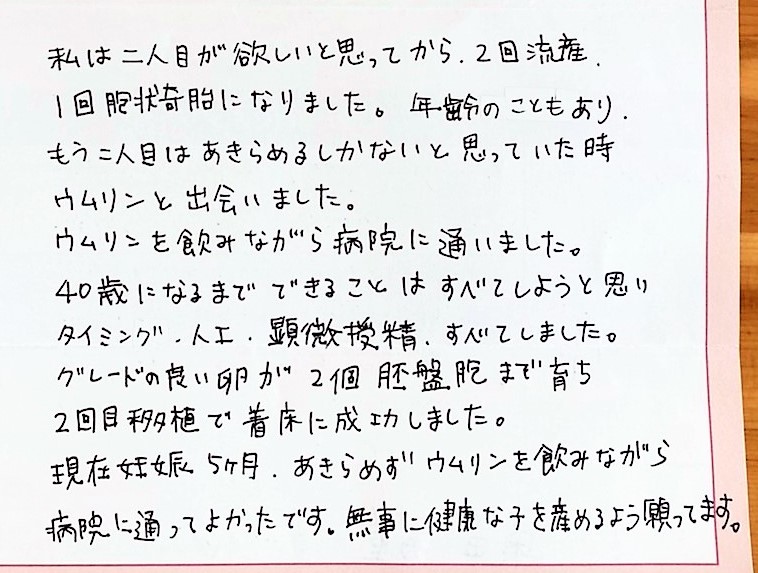 私は二人目が欲しいと思ってから、2回流産、
1回胞状奇胎になりました。年齢のこともあり、
もう二人目はあきらめるしかないと思っていた時
ウムリンと出会いました。
ウムリンを飲みながら病院に通いました。
40歳になるまでできることはすべてしようと思い
タイミング、人工、顕微授精、すべてしました。
グレードの良い卵が2個胚盤胞まで育ち
2回目移植で着床に成功しました。
現在妊娠5ヶ月、あきらめずウムリンを飲みながら
病院に通ってよかったです。無事に健康な子を産めるよう願ってます。